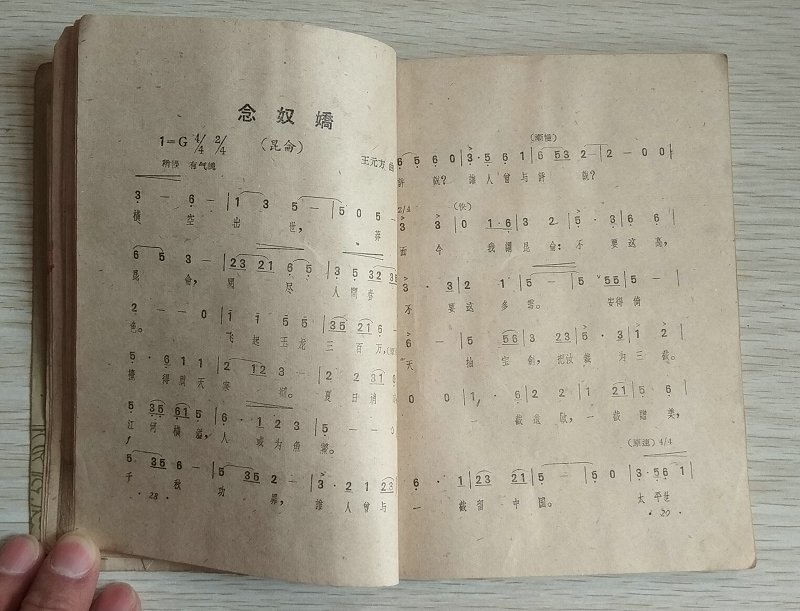 念奴嬌
1=G 4/4 2/4
(昆侖)
稍慢 有气魄
王元方
3 — 6 — | 1 3 5 — | 5 0 5 —
橫空出世, 莽
6 5 3 — | 23 21 6 5 | 3 5 32 35
昆侖, 閱尽人間春
2 — — 0 | 1 1 5 5 | 35 21 6
色。 飞起玉龙三百万,
5 · 1 7 1 | 2 12 3 — | 2 2 31
攪得周天寒彻。 夏日消
5 35 61 5 | 6 · 1 2 3 | 5 — —
江河横溢, 人或为魚鱉。
5 35 6 — | 5 35 2 — | 3 · 2 1 23
千秋功罪, 誰人曾与
· 28 ·
(漸慢)
6 5 6 0 | 3 · 5 6 1 | 5 53 2 — | 2 — 0 0
評說? 誰人曾与評說?
2/4 (快)
3 3 | 0 1 · 6 | 3 2 | 5 · 3 | 6 6
而今 我謂昆侖: 不要这高,
· 3 | 2 1 | 5 — | 5 — | 55 5
不要这多雪。 安得倚
6 — | 5 56 | 3 23 | 5 · 3 | 1 2
天 抽宝劍, 把汝裁为三截。
0 0 | 1 · 6 | 2 2 | 1 5 | 1 2
一截遺歐, 一截贈美,
(原速) 4/4
6 · 1 | 23 21 | 5 — | 5 0 | 3 · 56 1
一截留中国。 太平世
· 20 ·